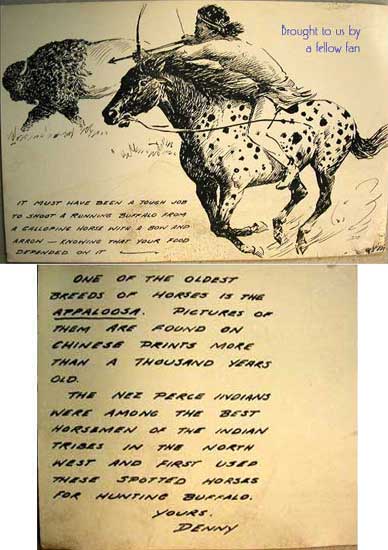 Brought to us by
a fellow fan
IT MUST HAVE BEEN A TOUGH JOB
TO SHOOT A RUNNING BUFFALO FROM
A GALLOPING HORSE WITH A BOW AND
ARROW — KNOWING THAT YOUR FOOD
DEPENDED ON IT
ONE OF THE OLDEST
BREEDS OF HORSES IS THE
APPALOOSA. PICTURES OF
THEM ARE FOUND ON
CHINESE PRINTS MORE
THAN A THOUSAND YEARS
OLD.
THE NEZ PERCE INDIANS
WERE AMONG THE BEST
HORSEMEN OF THE INDIAN
TRIBES IN THE NORTH
WEST AND FIRST USED
THESE SPOTTED HORSES
FOR HUNTING BUFFALO.
YOURS.
DENNY